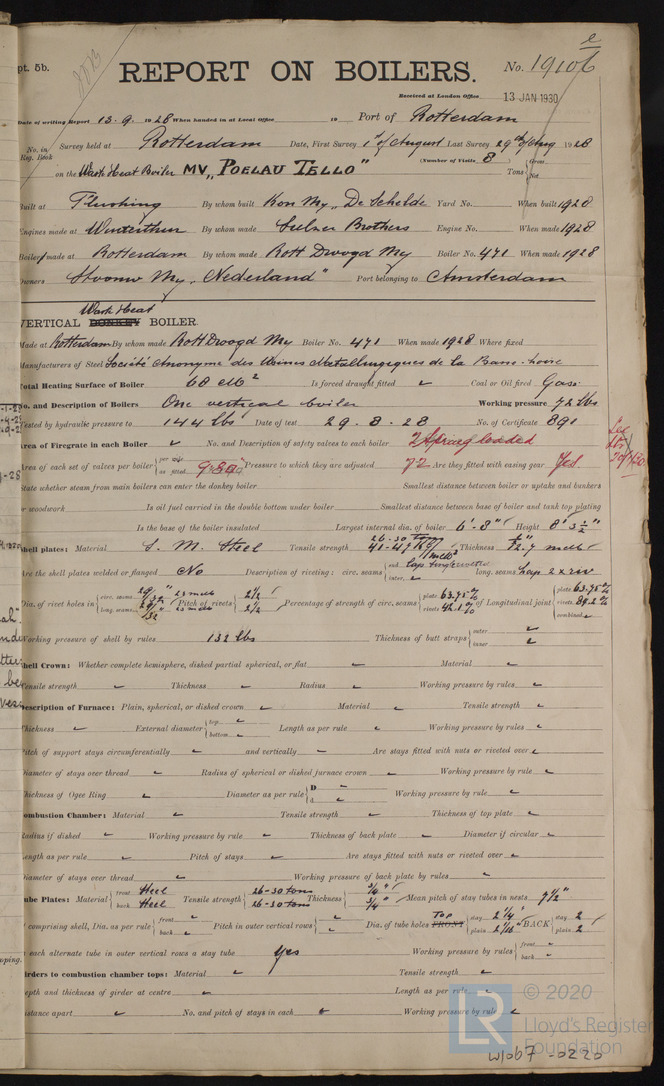 pt. 5b.
REPORT ON BOILERS.
No. 19106
Received at London Office 13 JAN 1930
Date of writing Report 13. 9. 1928 When handed in at Local Office 19 Port of Rotterdam
No. in Reg. Book Survey held at Rotterdam Date, First Survey 1st of August Last Survey 29th of Aug 1928
on the Wash Heat Boiler MV "POELAU TELLO" (Number of Visits 8) Tons { Gross Net
Built at Flushing By whom built Kon My "De Schelde Yard No. When built 1928
Engines made at Winterthur By whom made Sulzer Brothers Engine No. When made 1928
Boilers made at Rotterdam By whom made Rott Droogd My Boiler No. 471 When made 1928
Owners Stoomv My "Nederland" Port belonging to Amsterdam
Wash Heat
VERTICAL DONKEY BOILER.
Made at Rotterdam By whom made Rott Droogd My Boiler No. 471 When made 1928 Where fixed
Manufacturers of Steel Société Anonyme des Usines Métallurgiques de la Basse-
Total Heating Surface of Boiler 60 M² Is forced draught fitted Coal or Oil fired Gas
No. and Description of Boilers One vertical boiler Working pressure 72 lbs
Tested by hydraulic pressure to 144 lbs Date of test 29. 8. 28 No. of Certificate 891
Area of Firegrate in each Boiler No. and Description of safety valves to each boiler 2 Spring loaded
Area of each set of valves per boiler { per rule as fitted Pressure to which they are adjusted 72 Are they fitted with easing gear Yes
State whether steam from main boilers can enter the donkey boiler Smallest distance between boiler or uptake and bunkers
or woodwork Is oil fuel carried in the double bottom under boiler Smallest distance between base of boiler and tank top plating
Is the base of the boiler insulated Largest internal dia. of boiler 6'-8" Height 8' 3½"
Shell plates: Material S. M. Steel Tensile strength 26-30 ton 41-47 Thickness
Are the shell plates welded or flanged No Description of riveting: circ. seams { end lap single riveted inter. long. seams Lap 2 x riv
Dia. of rivet holes in { circ. seams 29/32" 23 mm long. seams 29/32" 23 mm Pitch of rivets { 2½ 2½ Percentage of strength of circ. seams { plate 63.75% rivets 42.1% of Longitudinal joint { plate 63.75% rivets 89.2% combined
Working pressure of shell by rules 132 lbs Thickness of butt straps { outer inner
Shell Crown: Whether complete hemisphere, dished partial spherical, or flat Material
Tensile strength Thickness Radius Working pressure by rules
Description of Furnace: Plain, spherical, or dished crown Material Tensile strength
Thickness External diameter { top bottom Length as per rule Working pressure by rules
Pitch of support stays circumferentially and vertically Are stays fitted with nuts or riveted over
Diameter of stays over thread Radius of spherical or dished furnace crown Working pressure by rule
Thickness of Ogee Ring Diameter as per rule { D d Working pressure by rule
Combustion Chamber: Material Tensile strength Thickness of top plate
Radius if dished Working pressure by rule Thickness of back plate Diameter if circular
Length as per rule Pitch of stays Are stays fitted with nuts or riveted over
Diameter of stays over thread Working pressure of back plate by rules
Tube Plates: Material { front Steel back Steel Tensile strength { 26-30 tons 26-30 tons Thickness { ¾" ¾" Mean pitch of stay tubes in nests 7½"
If comprising shell, Dia. as per rule { front back Pitch in outer vertical rows { Dia. of tube holes TOP FRONT { stay 2¼" plain 2 1/16" BACK { stay 2 plain 2
Is each alternate tube in outer vertical rows a stay tube yes Working pressure by rules { front back
Girders to combustion chamber tops: Material Tensile strength
Depth and thickness of girder at centre Length as per rule
Distance apart No. and pitch of stays in each Working pressure by rule
© 2020
LR Lloyd's Register
Foundation
W1067-0220